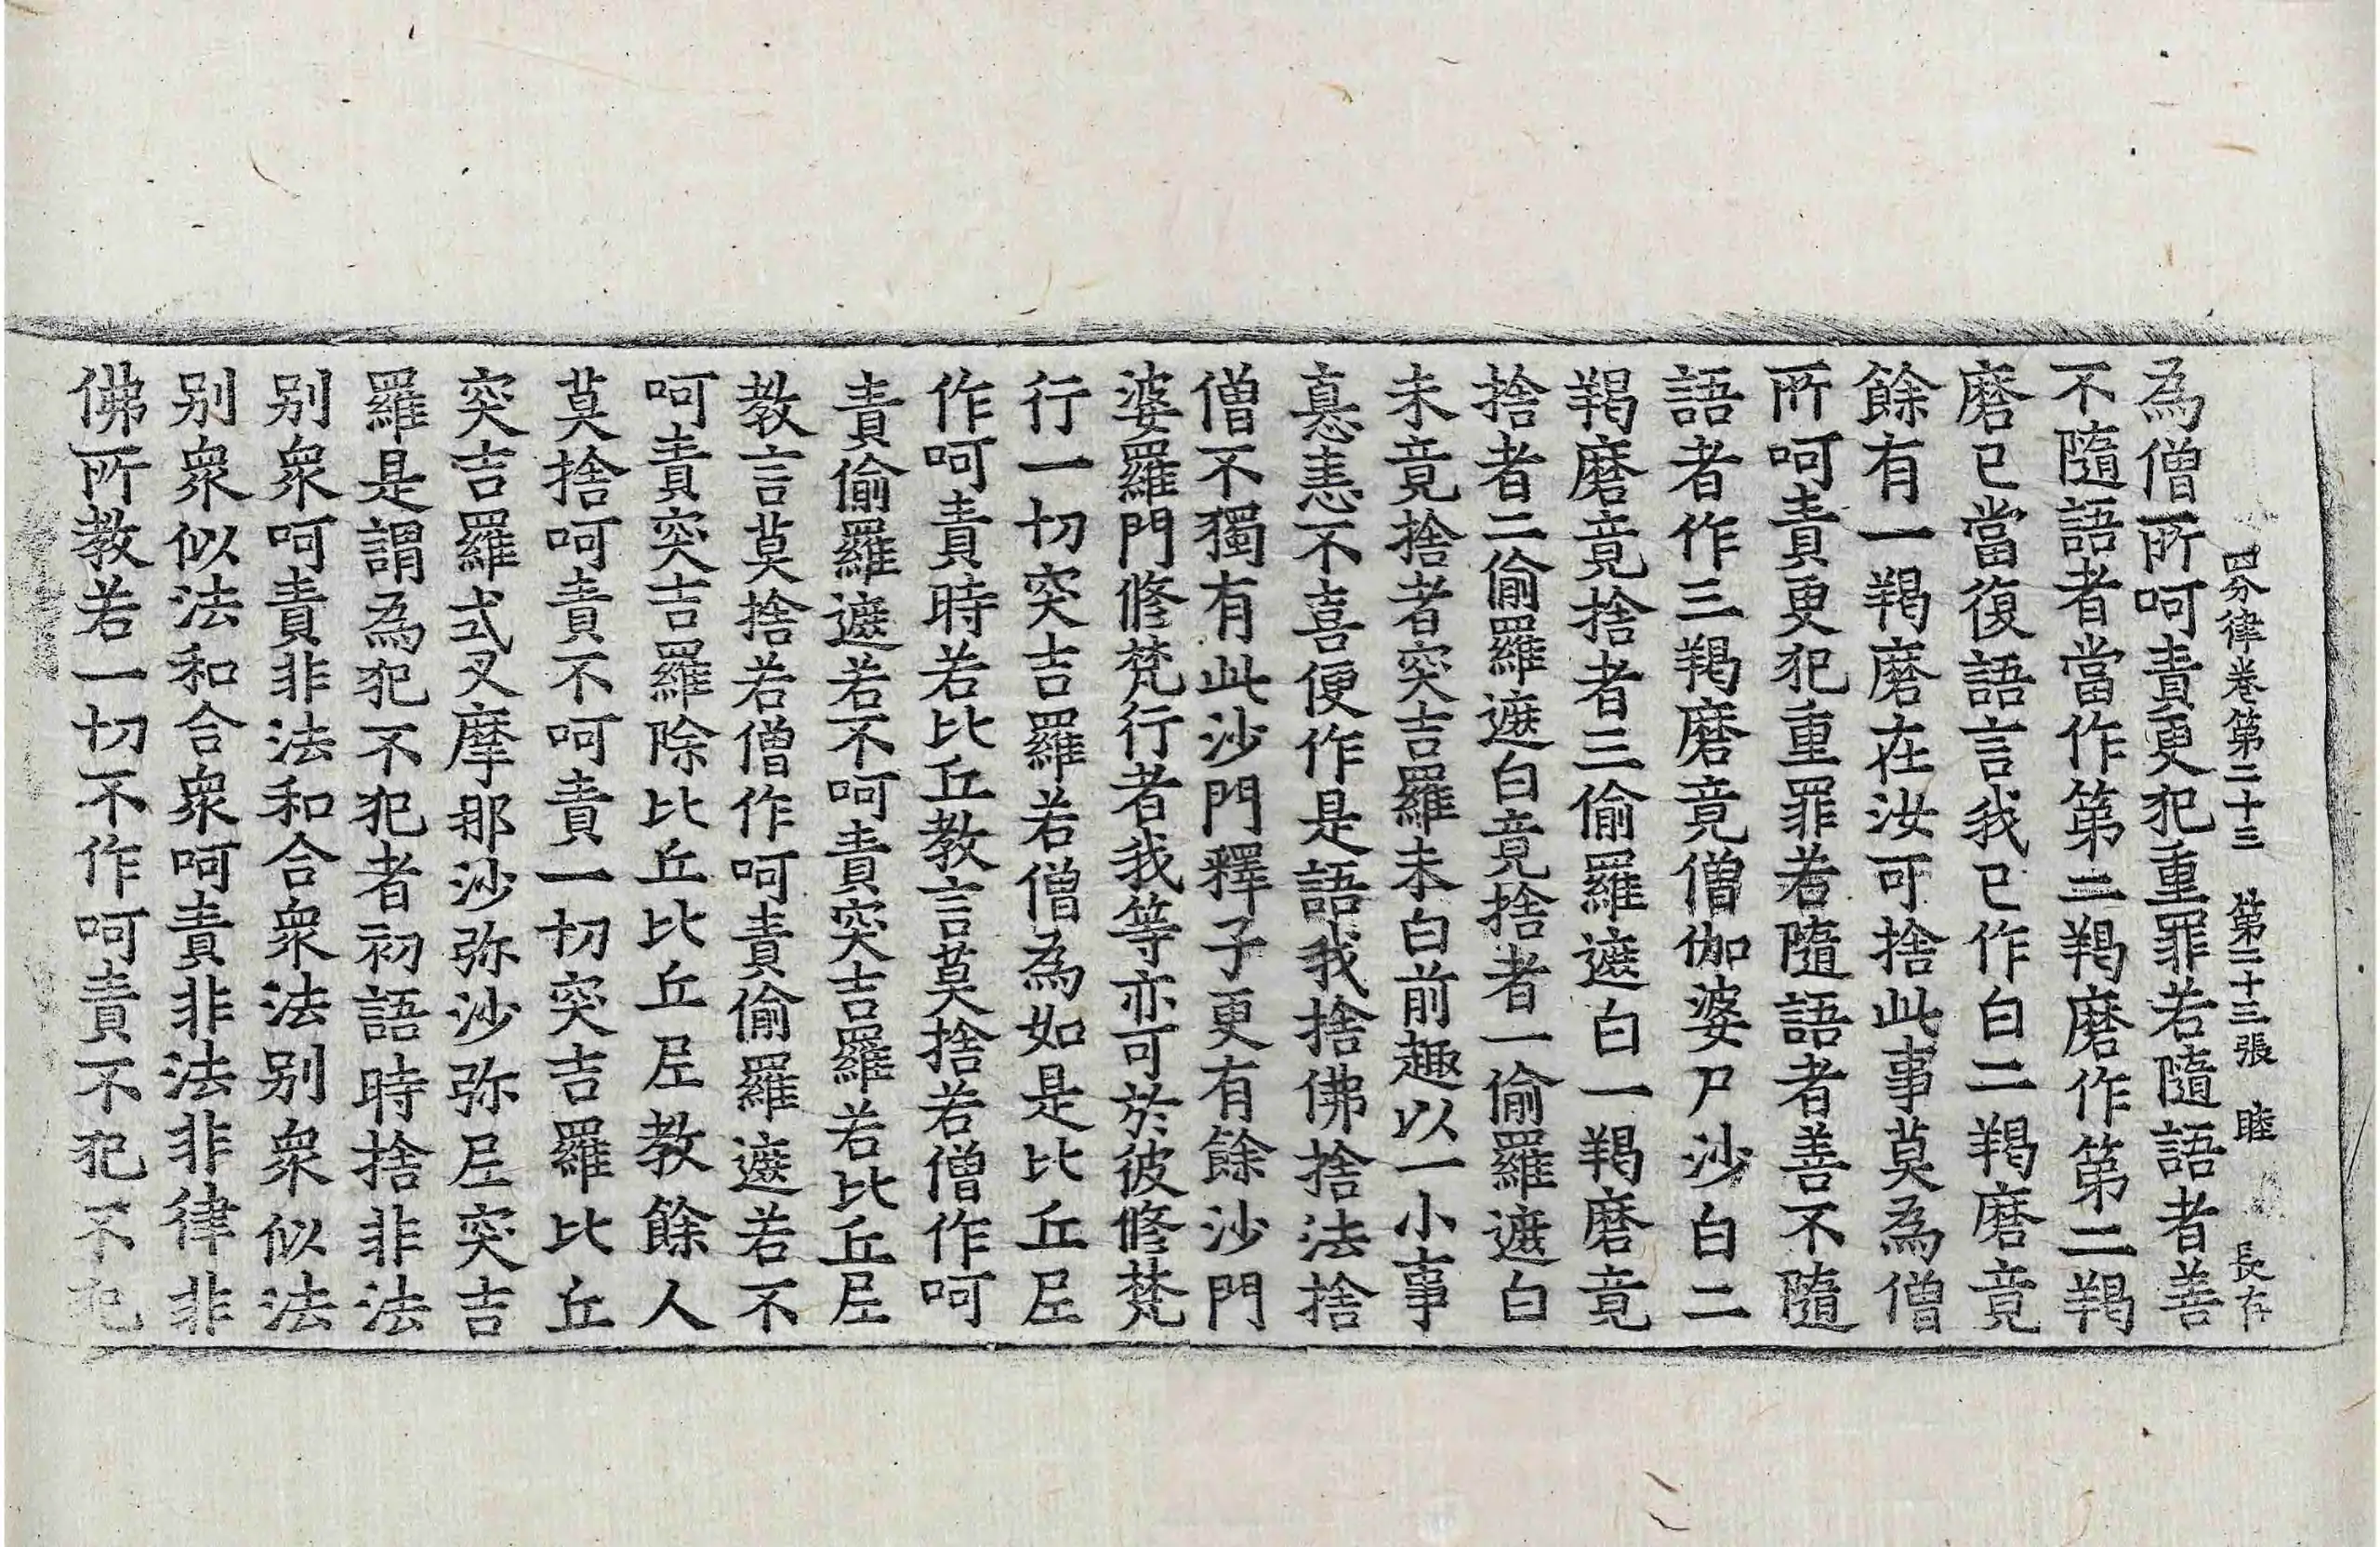 四分律卷第二十三 第二十三張 睦 長存
為僧所呵責更犯重罪若隨語者善
不隨語者當作第二羯磨作第二羯
磨已當復語言我已作白二羯磨竟
餘有一羯磨在汝可捨此事莫為僧
所呵責更犯重罪若隨語者善不隨
語者作三羯磨竟僧伽婆尸沙白二
羯磨竟捨者三偷羅遮白一羯磨竟
捨者二偷羅遮白竟捨者一偷羅遮白
未竟捨者突吉羅未白前趣以一小事
嗔恚不喜便作是語我捨佛捨法捨
僧不獨有此沙門釋子更有餘沙門
婆羅門修梵行者我等亦可於彼修梵
行一切突吉羅若僧為如是比丘尼
作呵責時若比丘教言莫捨若僧作呵
責偷羅遮若不呵責突吉羅若比丘尼
教言莫捨若僧作呵責偷羅遮若不
呵責突吉羅除比丘比丘尼教餘人
莫捨呵責不呵責一切突吉羅比丘
突吉羅式叉摩那沙弥沙弥尼突吉
羅是謂為犯不犯者初語時捨非法
別衆呵責非法和合衆法別衆似法
別衆似法和合衆呵責非法非律非
佛所教若一切不作呵責不犯不犯